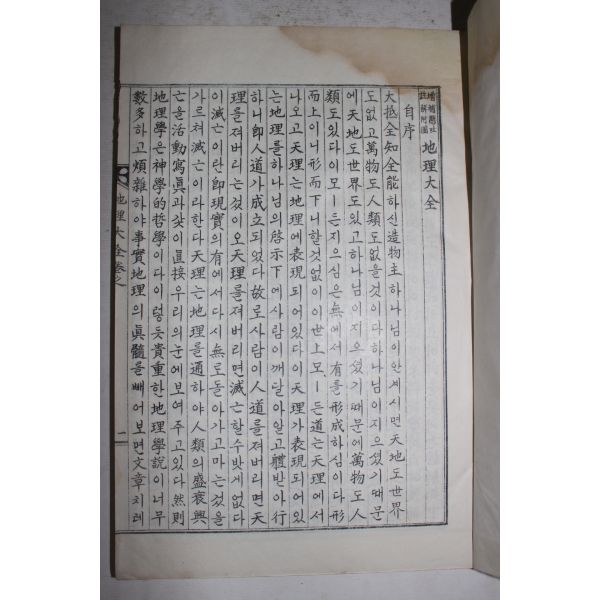 增補題註 地理大全
註解附圖
自序
大抵全知全能하신造物主하나님이안계시면天地도世界
도없고萬物도人類도없을것이다하나님이지으섯기때문
에天地도世界도있고하나님이지으섯기때문에萬物도人
類도있다이모ㅣ든지으심은無에서有를形成하심이다形
而上이니形而下니할것없이이世上모ㅣ든道는天理에서
나오고天理는地理에表現되어있다이天理가表現되어있
는地理를하나님의啓示下에사람이깨달아알고體받아行
하니即人道가成立되었다故로사람이人道를져버리면天
理를져버리는것이오天理를져버리면滅亡할수밧게없다
이滅亡即이란即現實의有에서다시無로돌아가고마는것을
가르쳐滅亡이라한다天理는地理를通하야人類의盛衰興
亡을活動寫眞과갗이直接우리의눈에보여주고있다然則
地理學은神學的哲學이다이렇듯貴重한地理學說이너무
數多하고煩雜하야事實地理의眞髓를빼어보면文章치레
地理大全卷之一